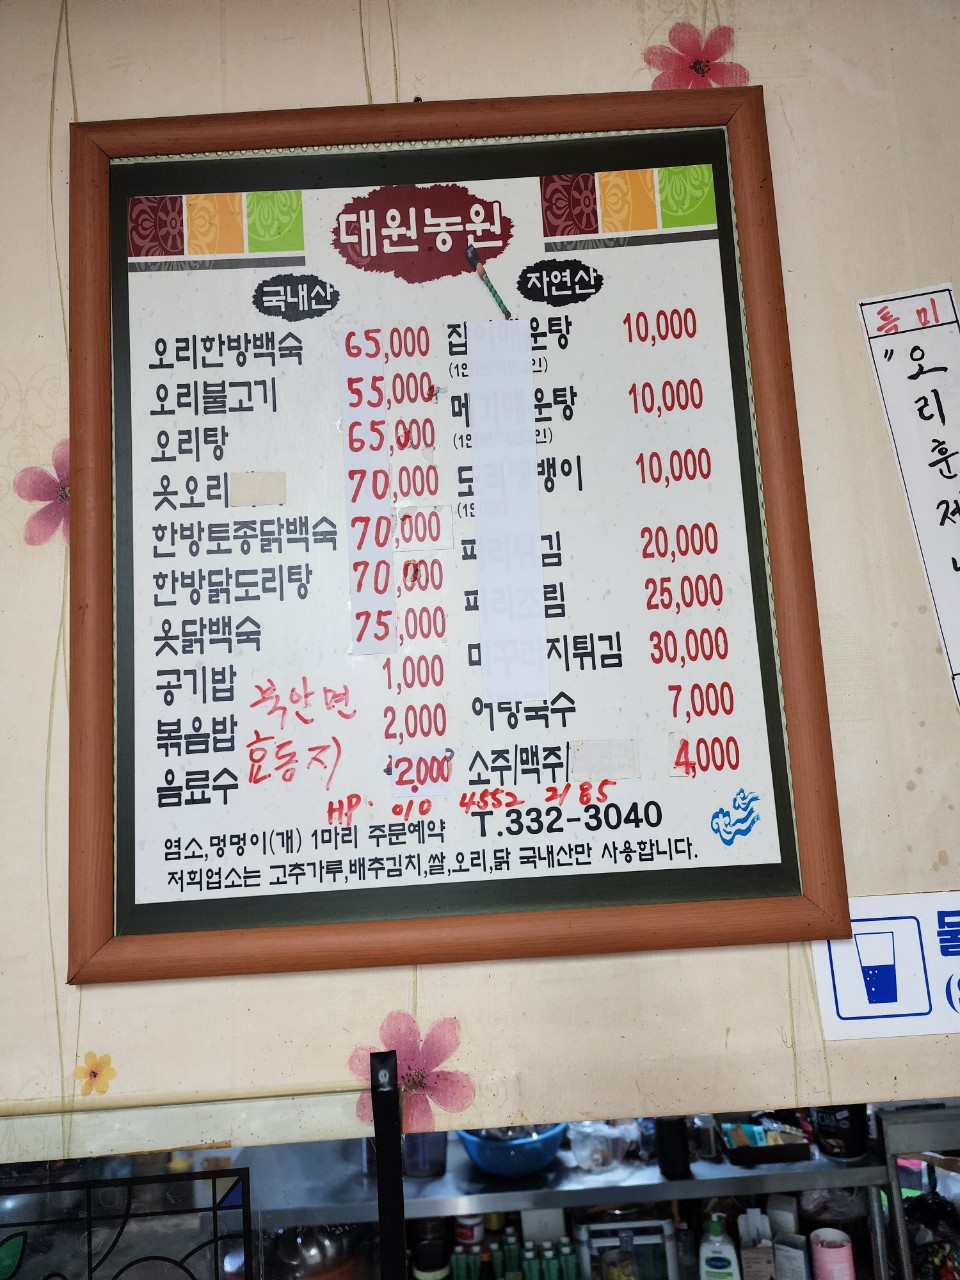 대원농원
국내산
오리한방백숙 65,000
오리불고기 55,000
오리탕 65,000
옻오리 70,000
한방토종닭백숙 70,000
한방닭도리탕 70,000
옻닭백숙 75,000
공기밥 1,000
볶음밥 2,000
음료수 2,000
북안면
효동지
자연산
10,000
10,000
10,000
20,000
25,000
30,000
어탕국수 7,000
소주/맥주/ 4,000
HP. 010 4552 2185
염소,멍멍이(개) 1마리 주문예약 T.332-3040
저희업소는 고추가루,배추김치,쌀,오리,닭 국내산만 사용합니다.
특미
"오리훈제